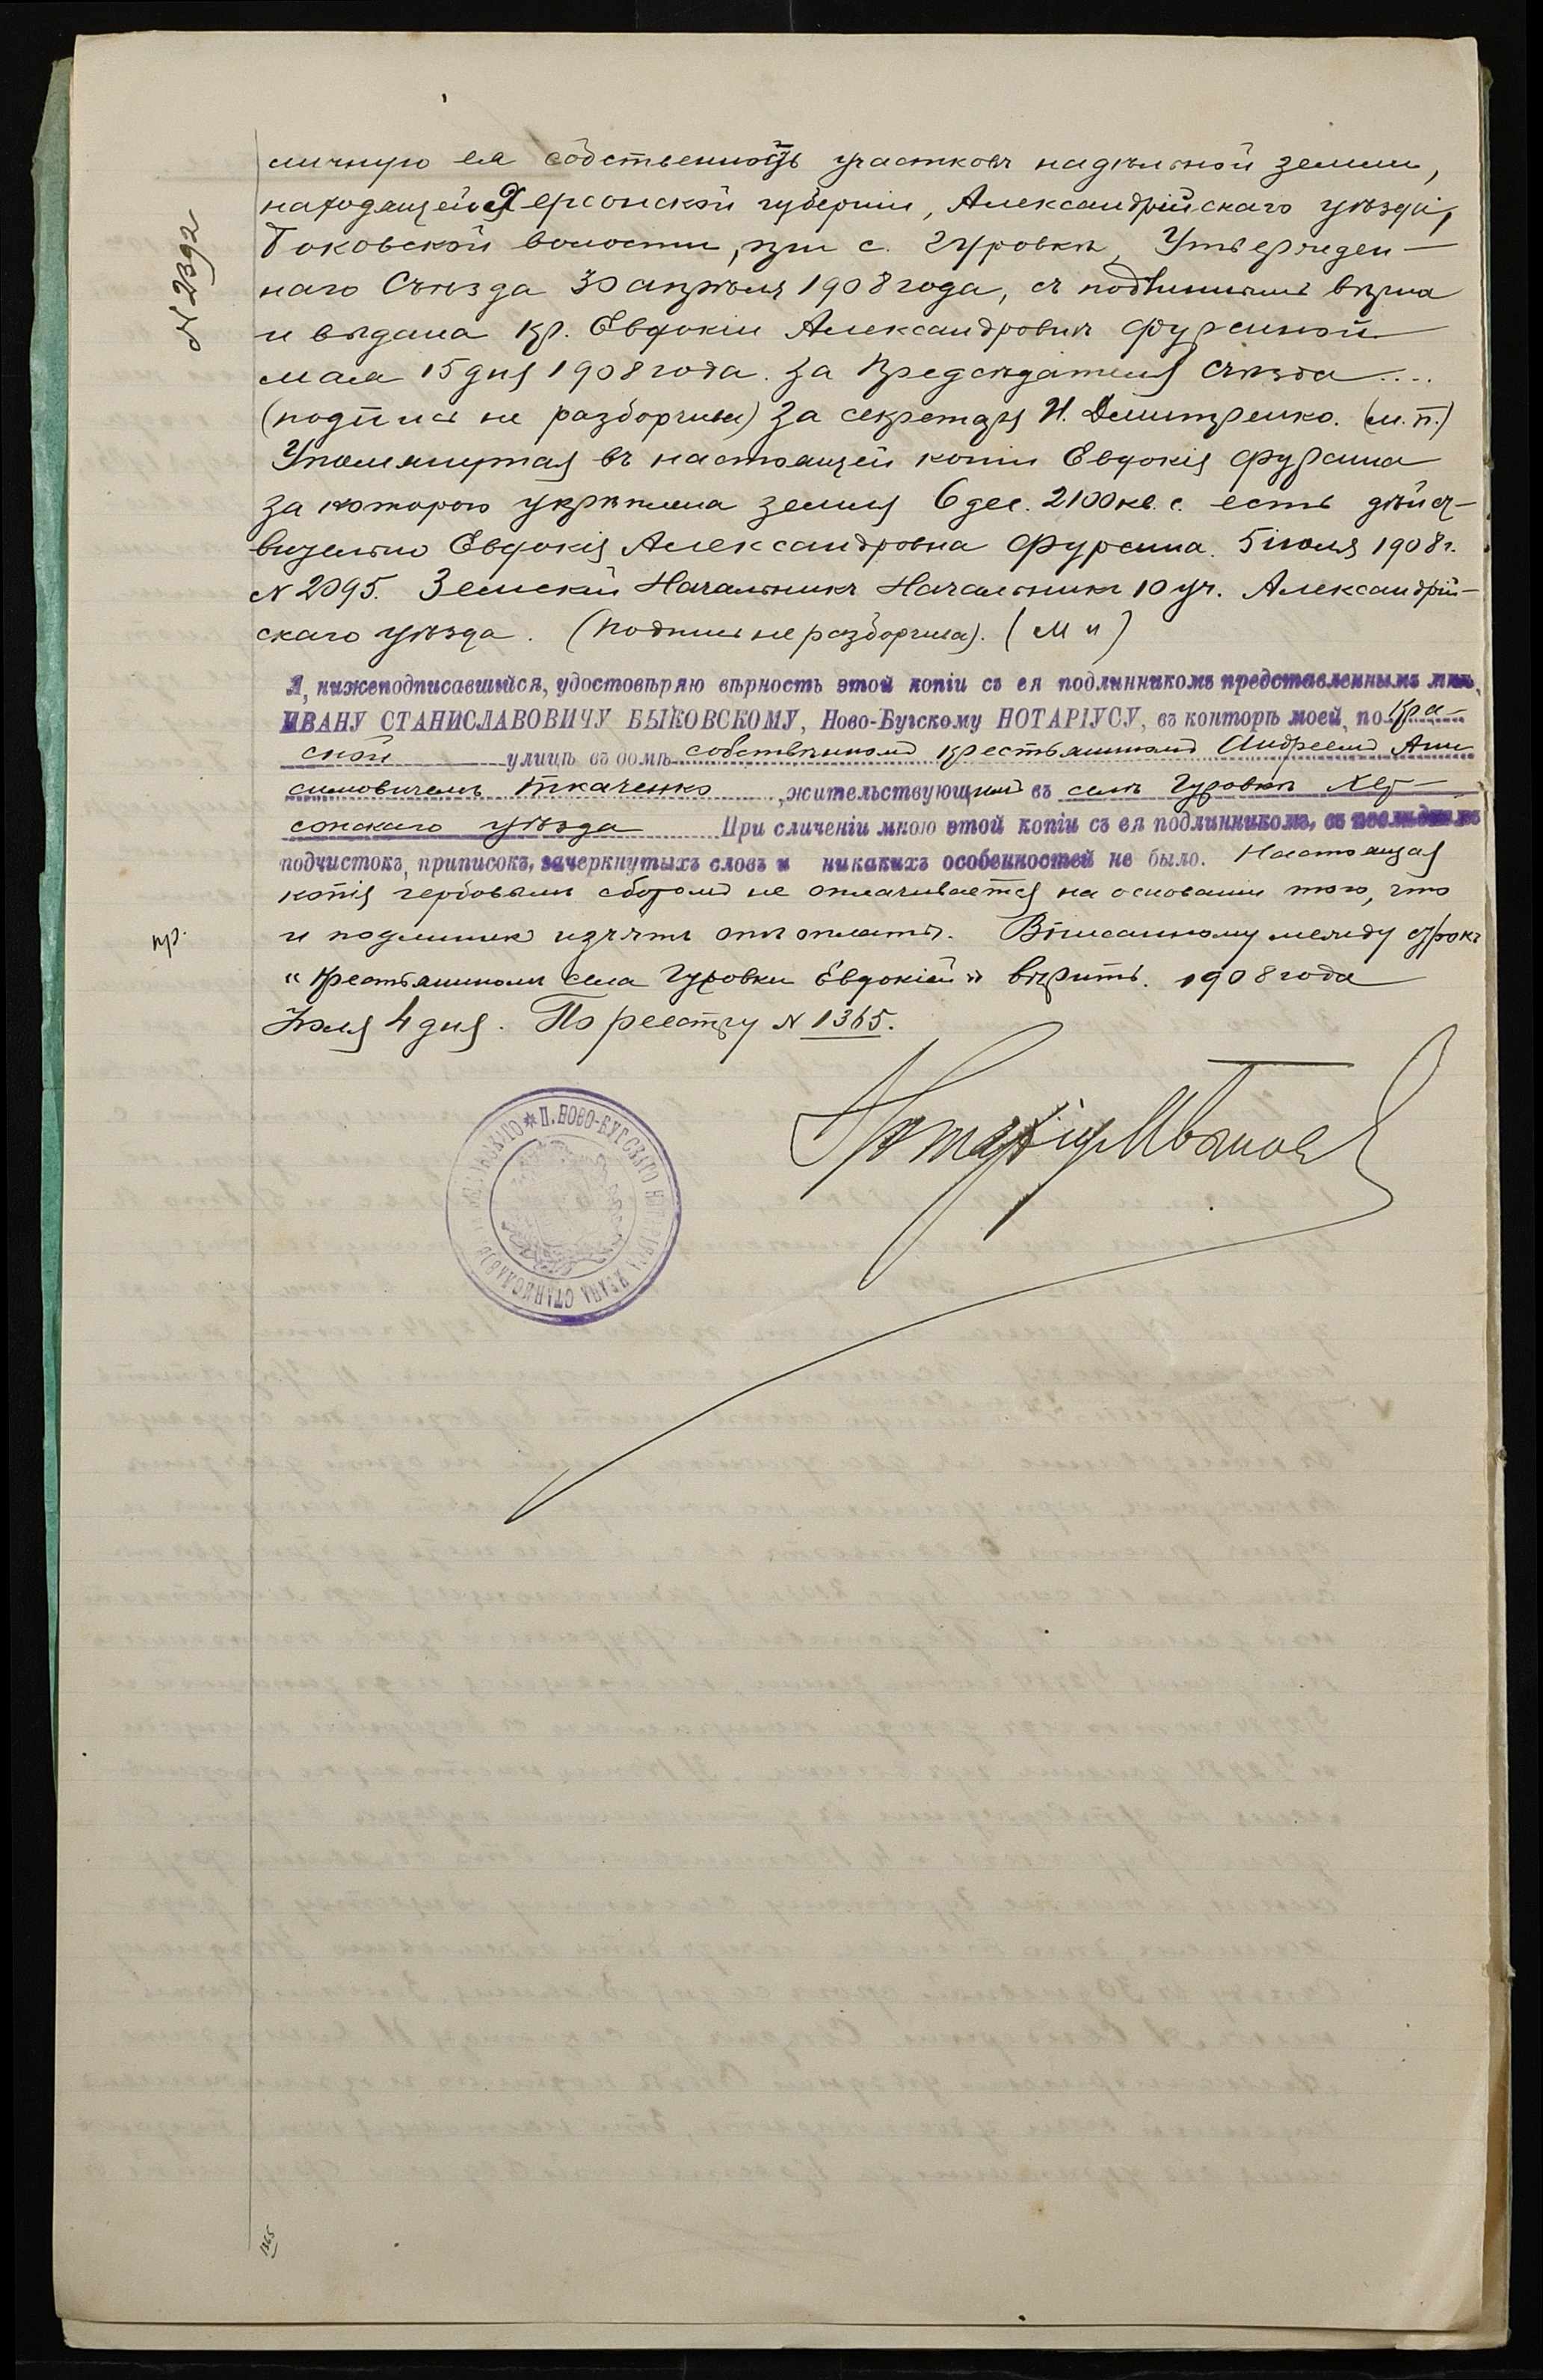 № 2392
личную ея собственность участковъ надѣльной земли,
находящейся Херсонской губерніи, Александрійскаго уѣзда,
Боковской волости, при с. Гуровкѣ, Утвержден-
наго Съѣзда 30 апрѣля 1908 года, съ подлиннымъ вѣрна
и выдана кр. Евдокіи Александровнѣ Фурсиной
мая 15 дня 1908 года. За Предсѣдателя съѣзда ....
(подпись не разборчива) За секретаря И. Димитренко. (м.п.)
Упомянутая въ настоящей копіи Евдокія Фурсина
за которою укрѣплена земля 6 дес. 2100 кв. с. есть дѣйст-
вительно Евдокія Александровна Фурсина. 5 іюля 1908 г.
№ 2095. Земскій Начальникъ Начальникъ 10 уч. Александрій-
скаго уѣзда. (Подпись не разборчива). (М п)
Я, нижеподписавшійся, удостовѣряю вѣрность этой копіи съ ея подлинникомъ представленнымъ мнѣ,
ИВАНУ СТАНИСЛАВОВИЧУ БЫКОВСКОМУ, Ново-Бугскому НОТАРІУСУ, въ конторѣ моей, по
ской улицѣ въ домѣ собственномъ крестьяниномъ Андреемъ
симовичемъ Ткаченко, жительствующимъ въ селѣ Гуровкѣ Хер-
сонскаго уѣзда При сличеніи мною этой копіи съ ея подлинникомъ, въ послѣднемъ
подчистокъ, приписокъ, зачеркнутыхъ словъ и никакихъ особенностей не было. Настоящая
копія гербовымъ сборомъ не оплачивается на основаніи того, что
и подлинник изъятъ отъ оплаты. Вписанному между строкъ
пр.
„крестьянином села Гуровки Евдокіей" вѣрить. 1908 года
Іюля 4 дня. По реестру № 1365.
Нотаріусъ
* П. НОВО-БУГСКАГО НОТАРІУСА ИВАНА СТАНИСЛАВОВ
1365